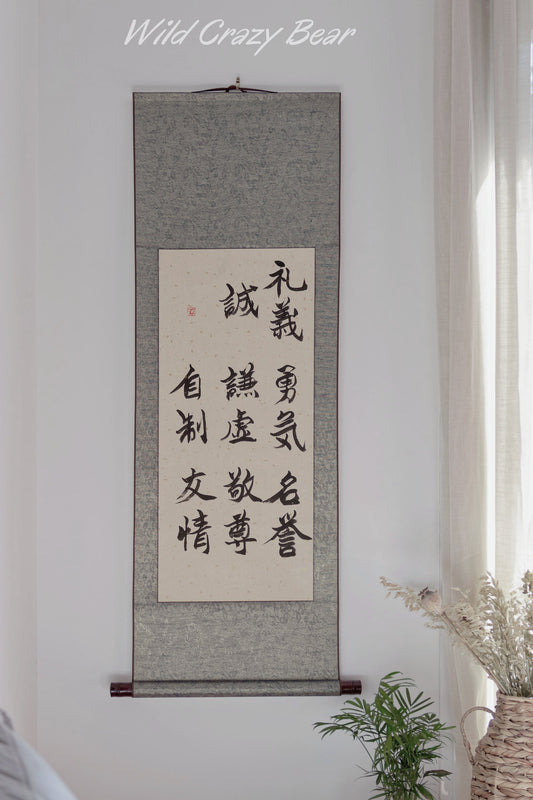 Wild Crazy Bear
礼義 勇気 名誉
誠 謙虚 敬尊
自制 友情